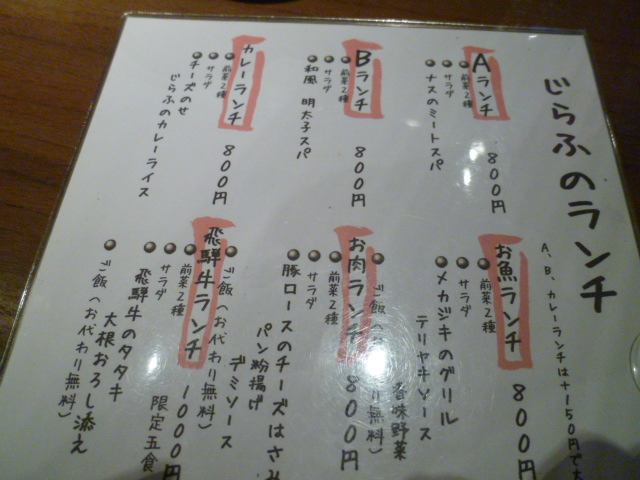 じらふのランチ
A、B、カレーランチは+150円で大
Aランチ 800円
前菜2種
サラダ
ナスのミートスパ
Bランチ 800円
前菜2種
サラダ
和風 明太子スパ
カレーランチ 800円
前菜2種
サラダ
チーズのせ
じらふのカレーライス
お魚ランチ 800円
前菜2種
サラダ
メカジキのグリル
テリヤキソース
香味野菜
ご飯(お代わり無料)
お肉ランチ 800円
前菜2種
サラダ
豚ロースのチーズはさみ
パン粉揚げ
デミソース
ご飯(お代わり無料)
飛騨牛ランチ 1000円
前菜2種
サラダ 限定五食
飛騨牛のタタキ
大根おろし添え
ご飯(お代わり無料)